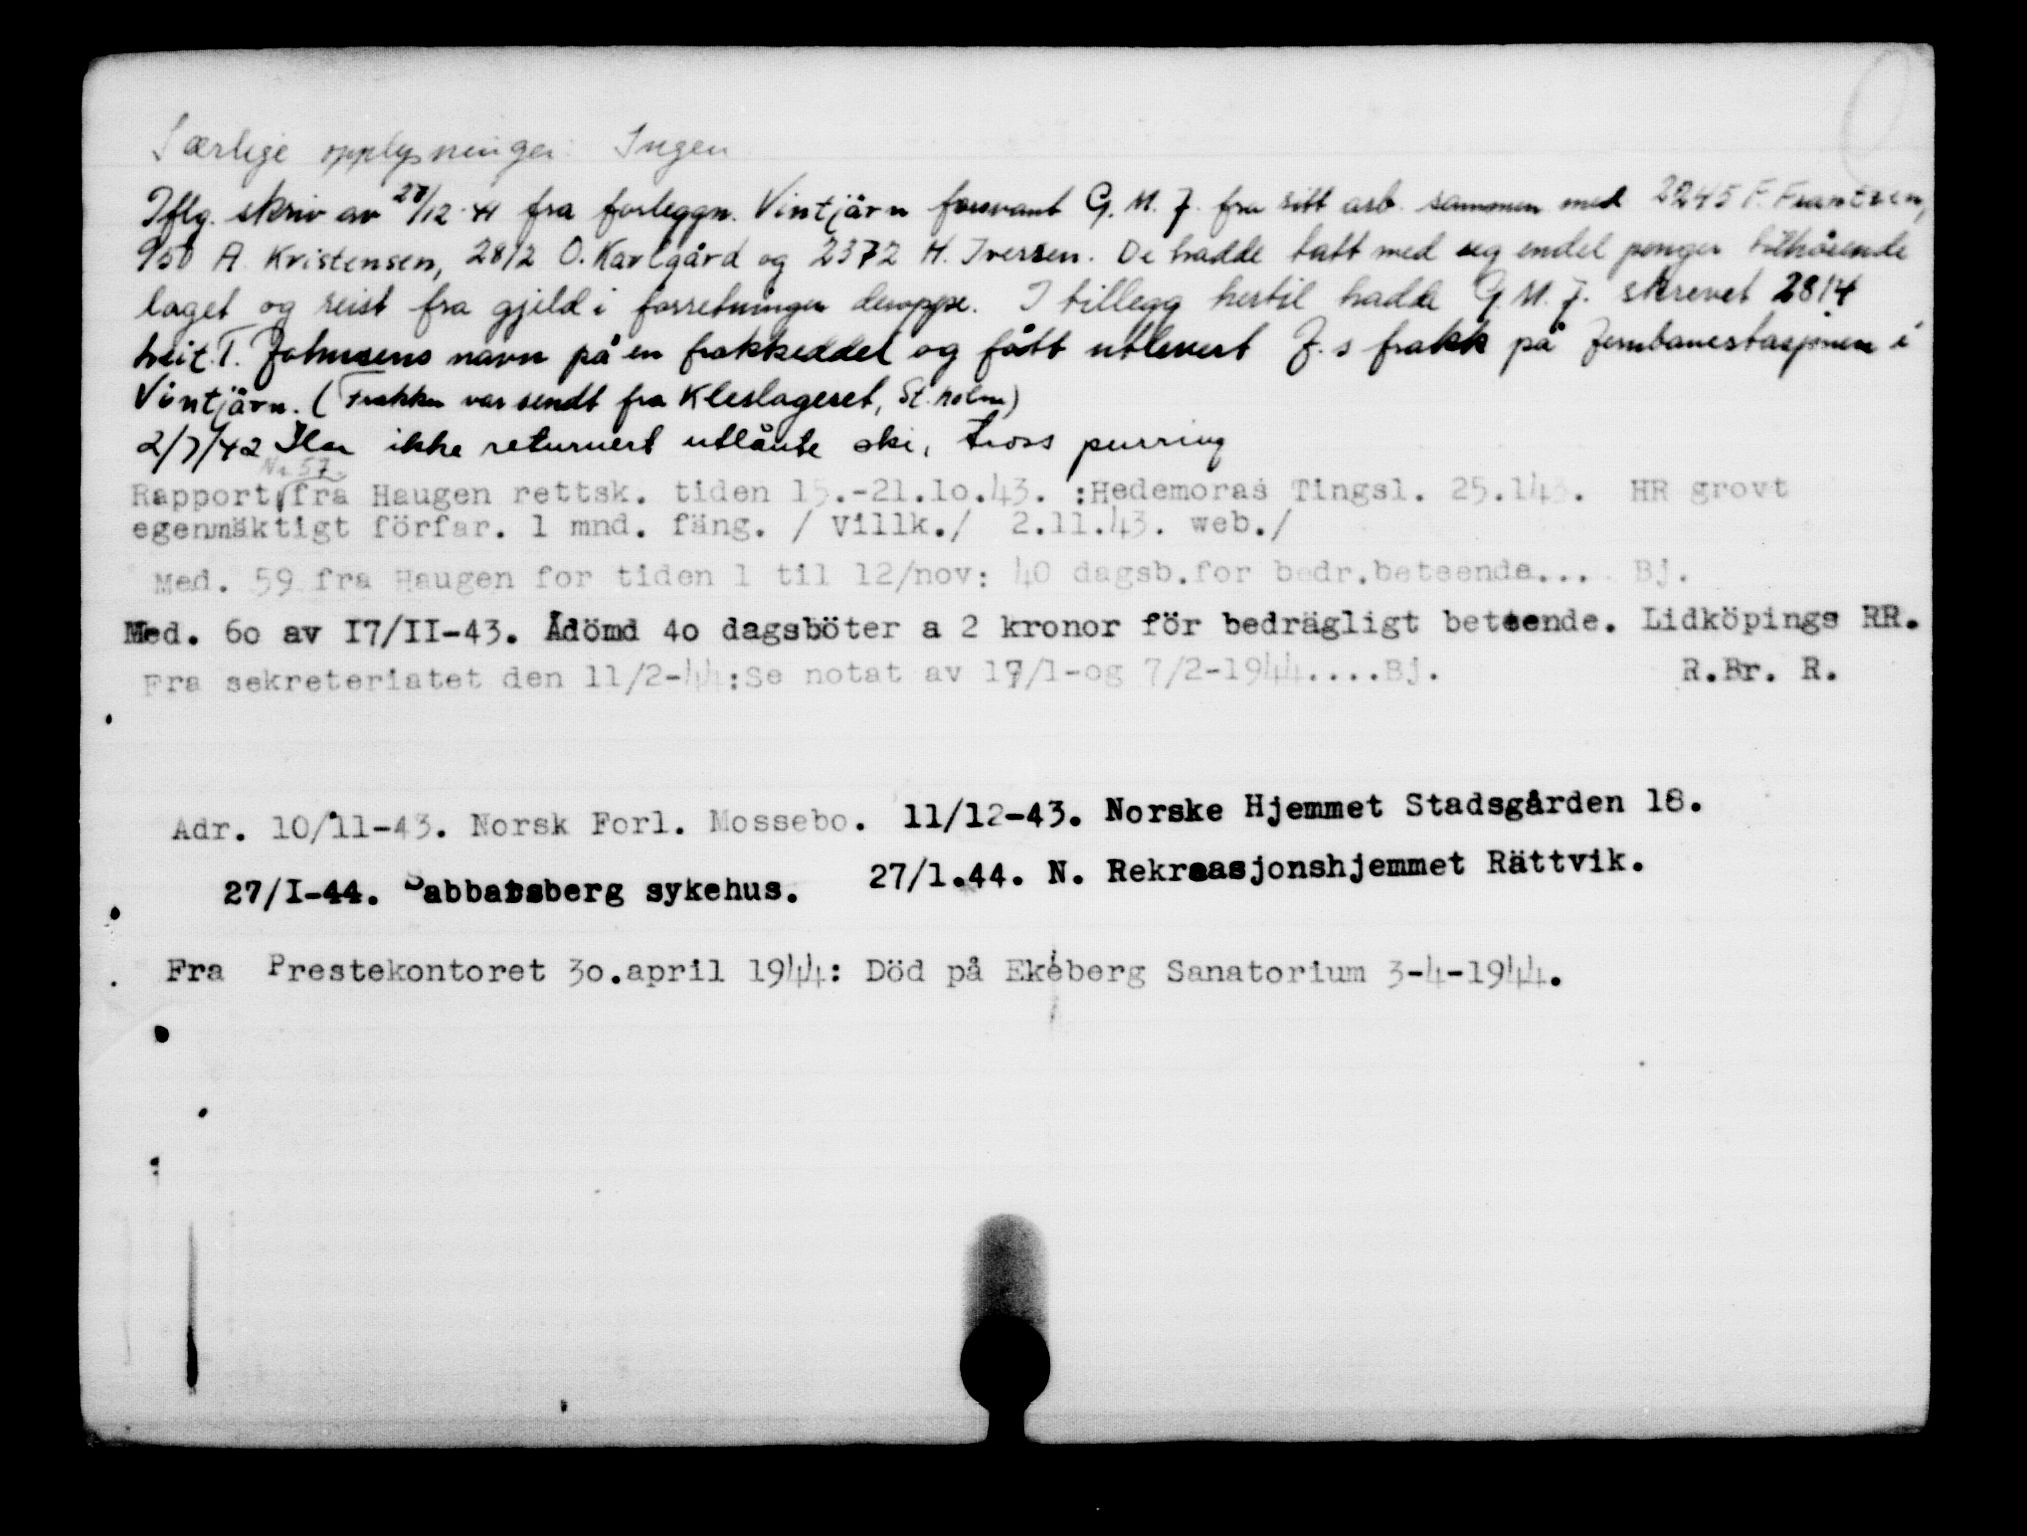 Særlige opplysninger: Ingen
Iflg. skriv av 27/12-41 fra forleggn. Vintjärn forsvant G. M. J. fra sitt arb. sammen med 2245 F. Frantzen,
950 A. Kristensen, 2812 O. Karlgård og 2372 H. Iversen. De hadde tatt med seg endel penger tilhörende
laget og reist fra gjeld i forretninger deroppe. I tillegg hertil hadde G. M. J. skrevet 2814
T. Johnsens navn på en frakkseddel og fått utlevert J.s frakk på Jernbanestasjonen i
Vintjärn. (Frakken var sendt fra Kleslageret, St.holm)
2/7/42 Har ikke returnert utlånte ski, tross purring
Nr 57
Rapport fra Haugen rettsk. tiden 15.-21.1o.43. :Hedemoras Tingsl. 25.143. HR grovt
egenmäktigt förfar. 1 mnd. fäng. / Villk./ 2.11.43. web./
Med. 59 fra Haugen for tiden 1 til 12/nov: 40 dagsb.for bedr.beteende... Bj.
Med. 6o av I7/II-43. Ådömd 4o dagsböter a 2 kronor för bedrägligt beteende. Lidköpings RR.
Fra sekreteriatet den 11/2-44:Se notat av 17/1-og 7/2-1944....Bj. R.Br. R.
Adr. 10/11-43. Norsk Forl. Mossebo. 11/12-43. Norske Hjemmet Stadsgården 18.
27/I-44. Sabbatsberg sykehus. 27/1.44. N. Rekreasjonshjemmet Rättvik.
Fra Prestekontoret 3o.april 1944: Död på Ekeberg Sanatorium 3-4-1944.